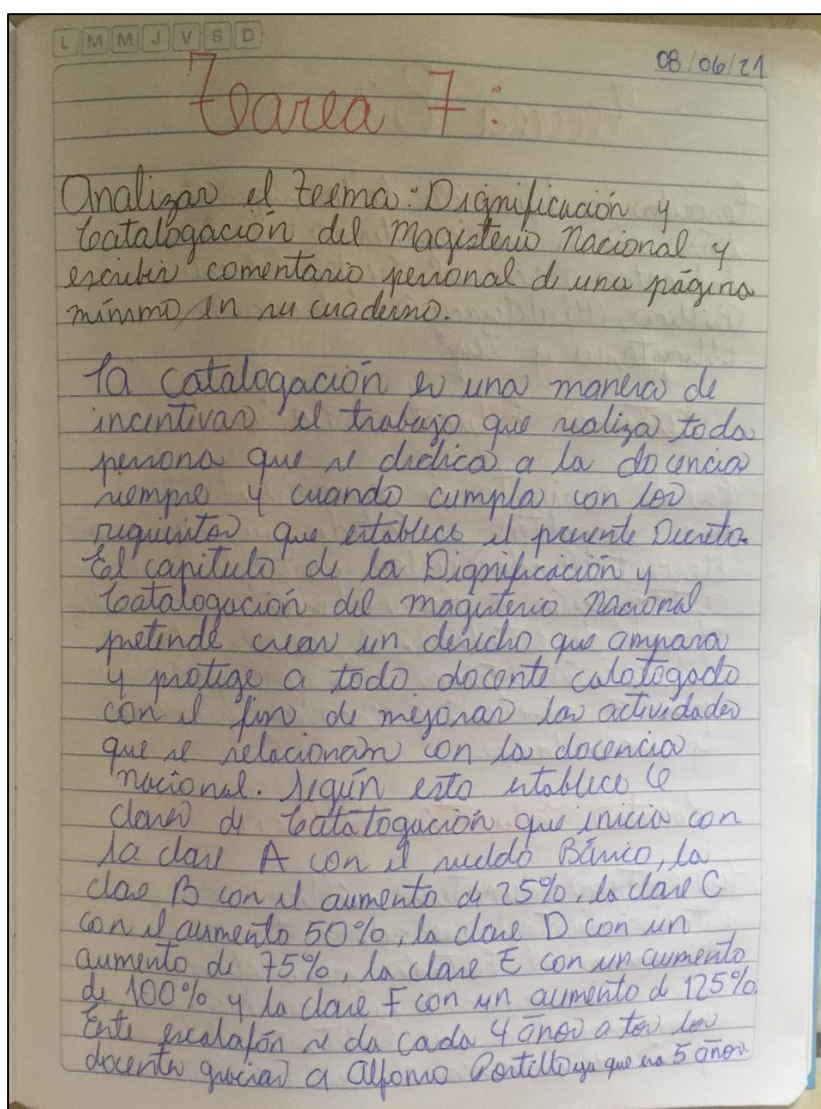 L M M J V S D
08/06/21
Tarea 7:
Analizar el tema: Dignificación y
Catalogación del Magisterio Nacional y
escribir comentario personal de una página
mínimo en su cuaderno.
La catalogación es una manera de
incentivar el trabajo que realiza toda
persona que se dedica a la docencia
siempre y cuando cumpla con los
requisitos que establece el presente Decreto.
El capítulo de la Dignificación y
Catalogación del Magisterio Nacional
pretende crear un derecho que ampara
y protege a todo docente catalogado
con el fin de mejorar las actividades
que se relacionan con la docencia
nacional. Según esto establece 6
clases de Catatogación que inicia con
la clase A con el sueldo Básico, la
clase B con el aumento de 25%, la clase C
con el aumento 50%, la clase D con un
aumento de 75%, la clase E con un aumento
de 100% y la clase F con un aumento d 125%.
Este escalafón se da cada 4 años a los
docente gracias a Alfonso Portillo ya que era 5 años.